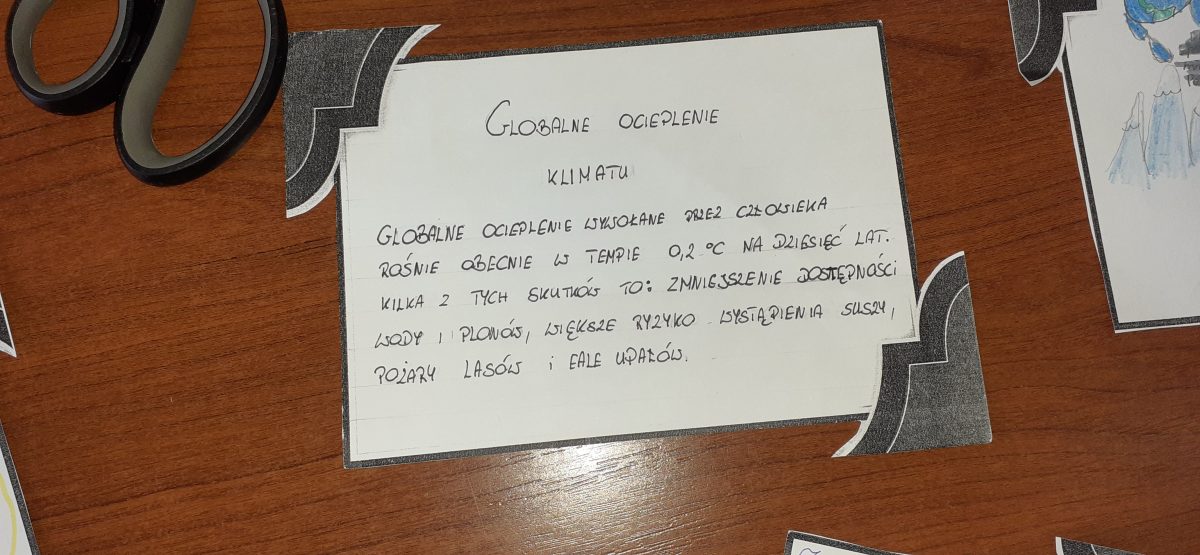 GLOBALNE OCIEPLENIE
KLIMATU
GLOBALNE OCIEPLENIE WYWOŁANE PRZEZ CZŁOWIEKA
ROŚNIE OBECNIE W TEMPIE 0,2 °C NA DZIESIĘĆ LAT.
KILKA Z TYCH SKUTKÓW TO: ZMNIEJSZENIE DOSTĘPNOŚCI
WODY I PLONÓW, WIĘKSZE RYZYKO WYSTĄPIENIA SUSZY,
POŻARY LASÓW i FALE UPAŁÓW.